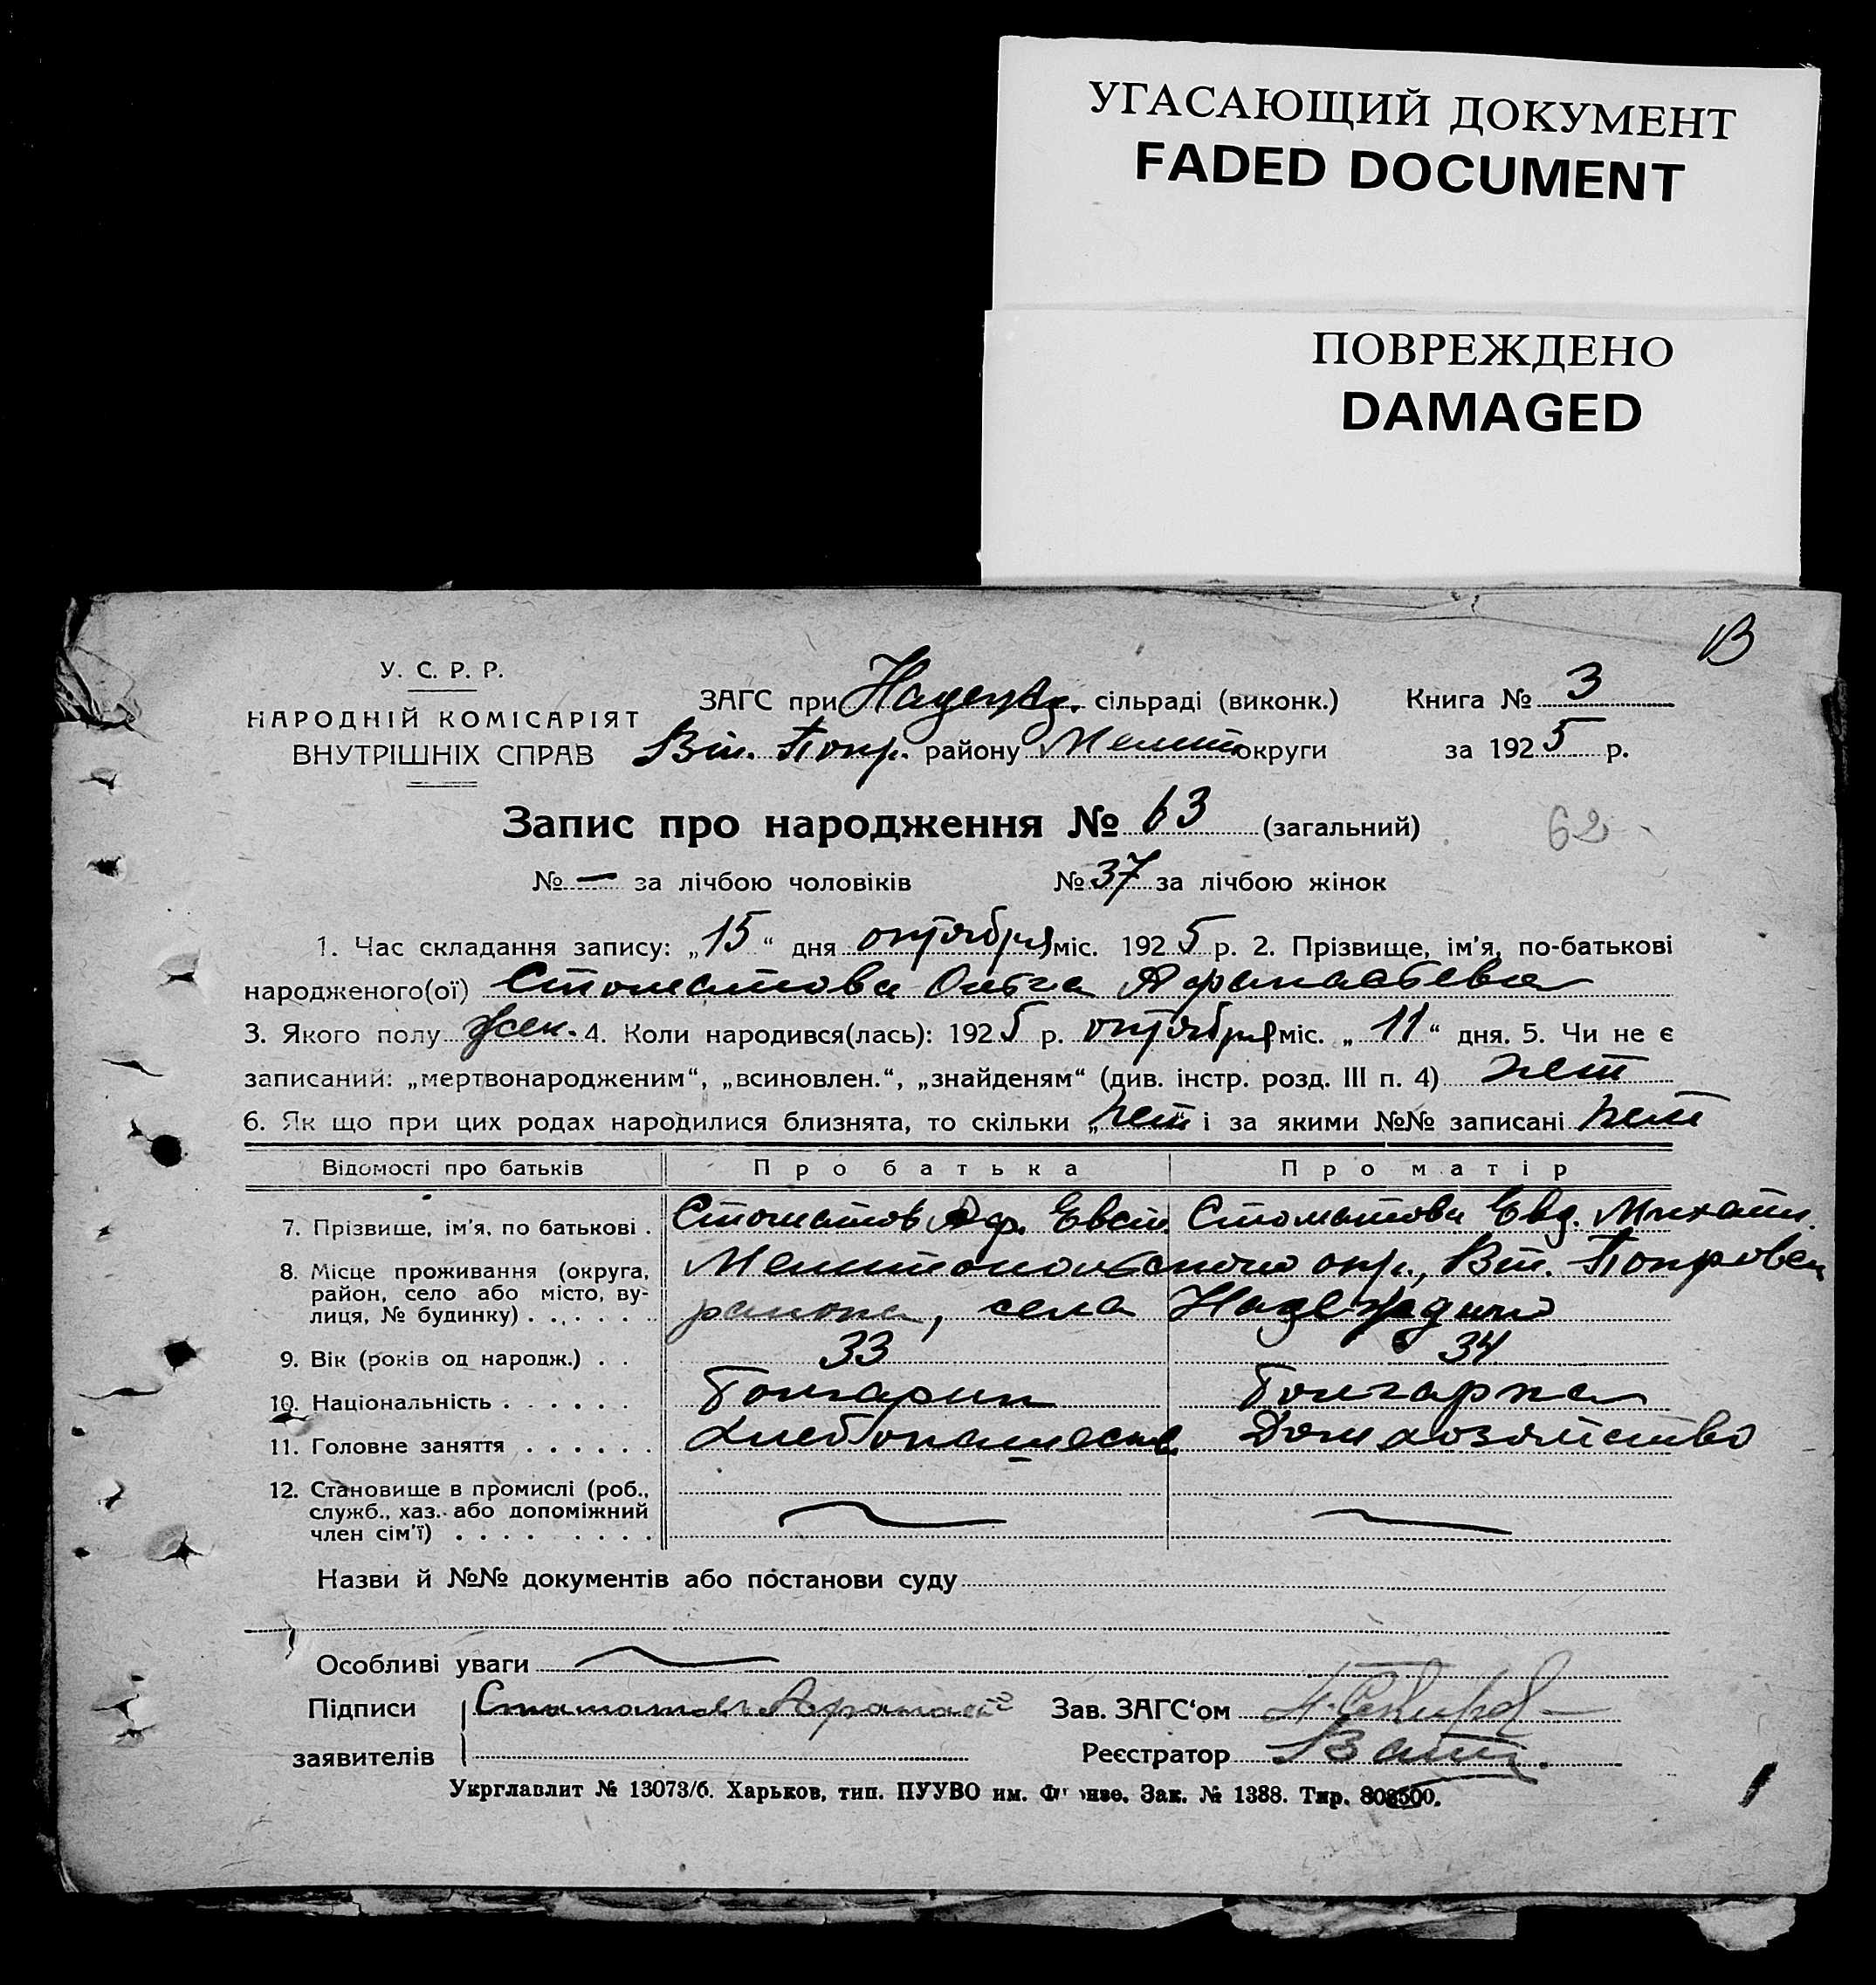 УГАСАЮЩИЙ ДОКУМЕНТ
FADED DOCUMENT
ПОВРЕЖДЕНО
DAMAGED
В
У. С. Р. Р.
НАРОДНІЙ КОМІСАРІЯТ
ВНУТРІШНІХ СПРАВ
ЗАГС при Надежд. сільраді (виконк.) Книга № 3
Вт. Покр. району Мелит округи за 1925 р.
Запис про народження № 63 (загальний) 62
№ — за лічбою чоловіків № 37 за лічбою жінок
1. Час складання запису: „15“ дня октября міс. 1925 р. 2. Прізвище, ім'я, по-батькові
народженого(ої) Стоматова Ольга Афанасьева
3. Якого полу жен. 4. Коли народився(лась): 1925 р. октября міс. „11“ дня. 5. Чи не є
записаний: „мертвонародженим“, „всиновлен.“, „знайденям“ (див. інстр. розд. III п. 4) нет
6. Як що при цих родах народилися близнята, то скільки „нет“ і за якими №№ записані нет
Відомості про батьків Про батька Про матір
7. Прізвище, ім'я, по батькові . Стоматов Аф. Евст. Стоматова Евд. Михайл.
8. Місце проживання (округа, район, село або місто, вулиця, № будинку) . . . . . . Мелитопольского окр., Вт. Покровск
района, села Надеждино
9. Вік (років од народж.) . . 33 34
10. Національність . . . . . . Болгарин Болгарка
11. Головне заняття . . . . . . Хлебопашеств. Дом хозяйство
12. Становище в промислі (роб.,
служб., хаз. або допоміжний
член сім'ї) . . . . . . . . .
Назви й №№ документів або постанови суду
Особливі уваги
Підписи Стаматов Афанасій Зав. ЗАГС'ом
заявителів Реєстратор
Укрглавлит № 13073/б. Харьков, тип. ПУУВО им. Фрунзе. Зак. № 1388. Тир. 808500.